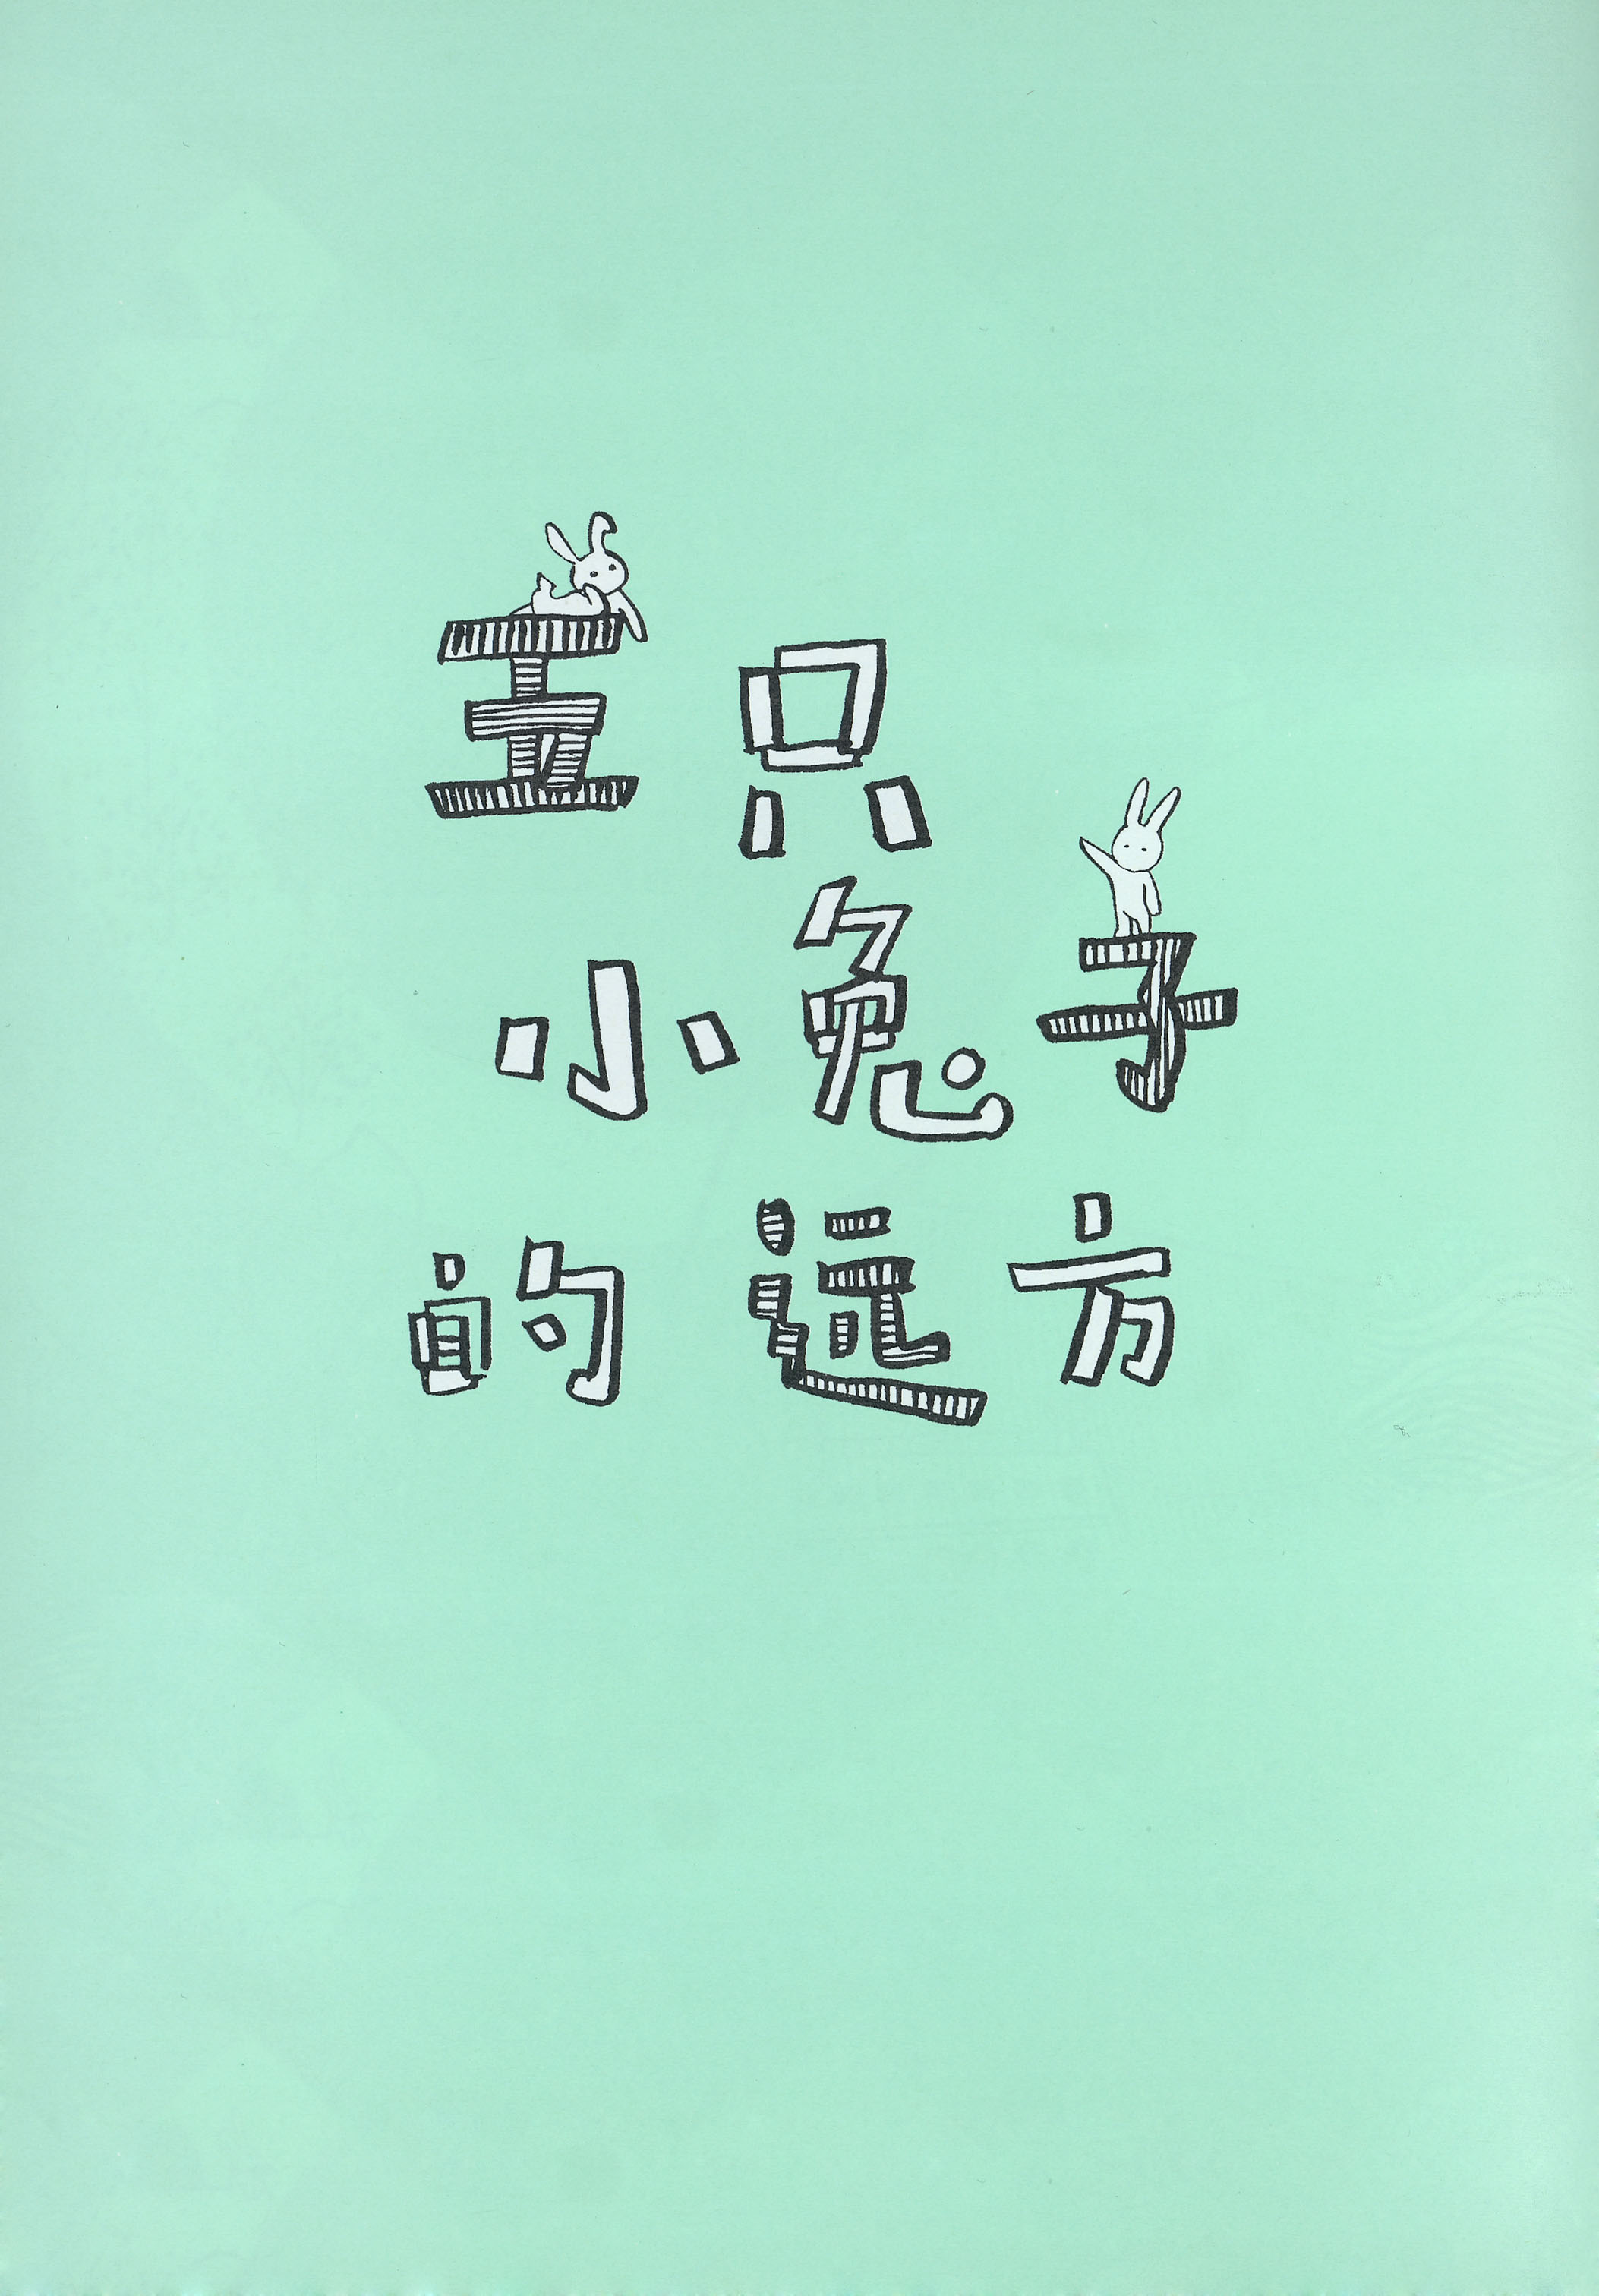 五只
小兔子
的远方